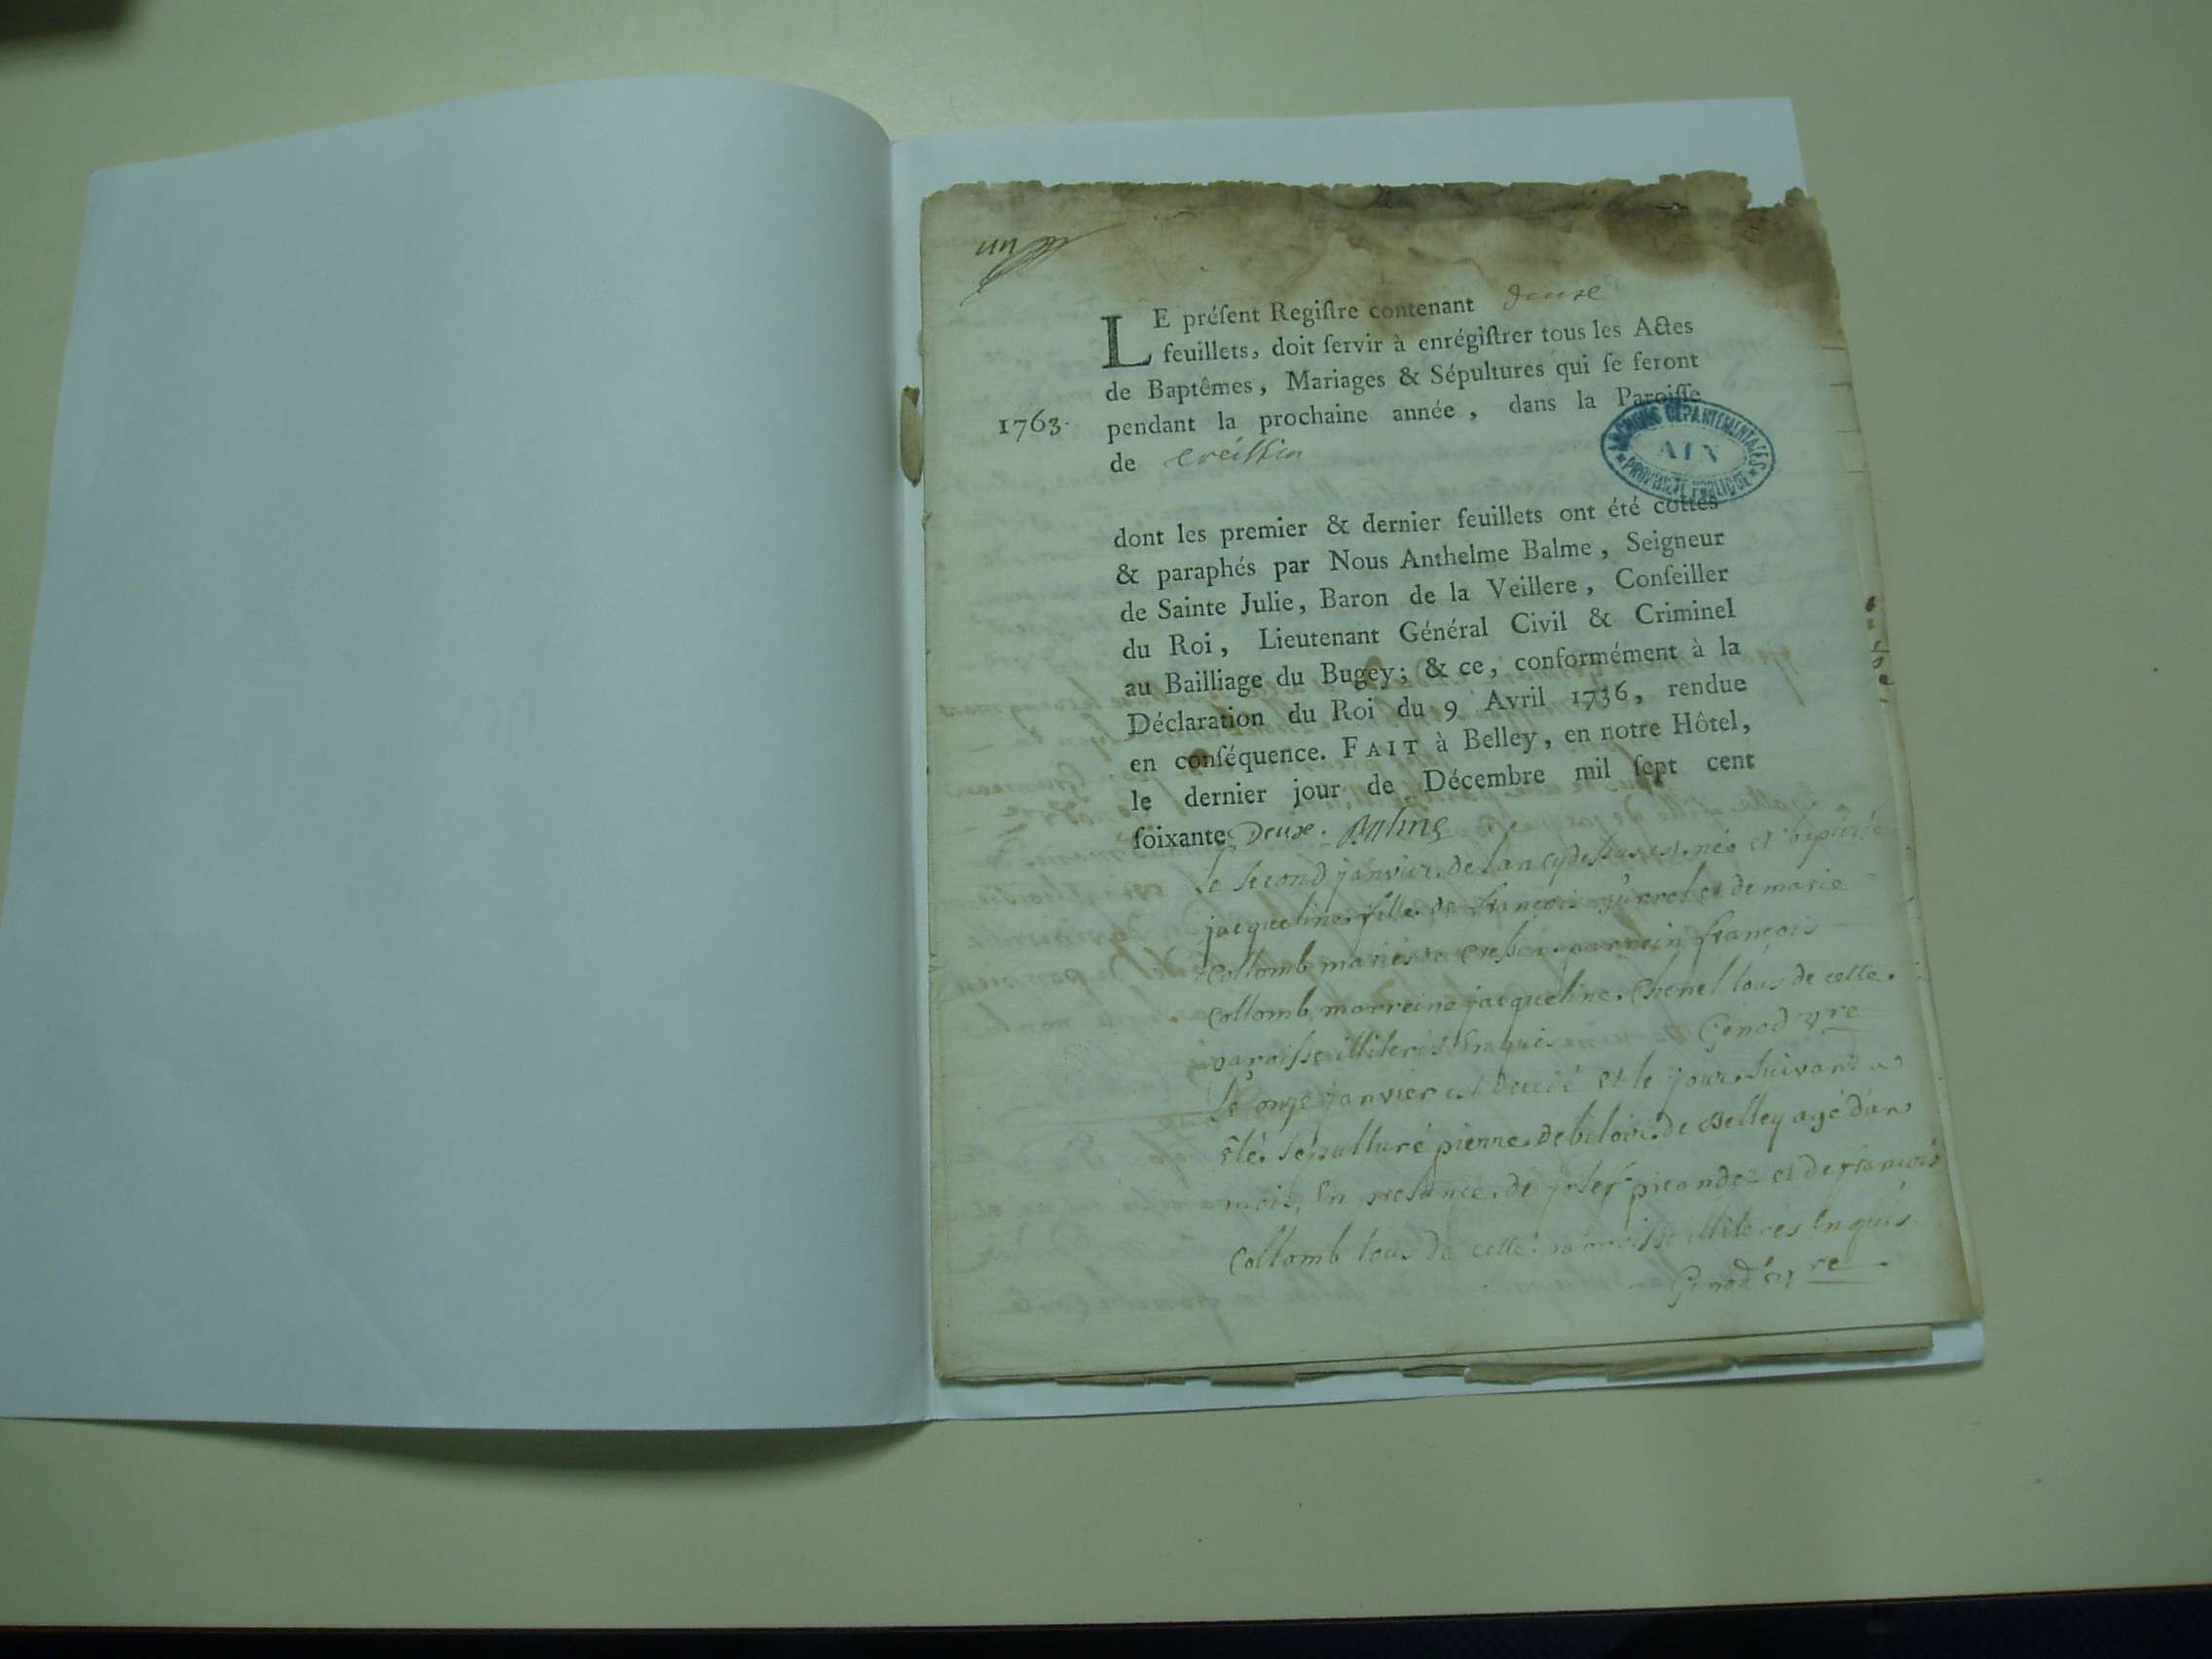 un
LE préſent Regiſtre contenant douze
feuillets, doit ſervir à enrégiſtrer tous les Actes
de Baptêmes, Mariages & Sépultures qui ſe feront
1763. pendant la prochaine année, dans la Paroiſſe
de
ARCHIVES DEPARTEMENTALES
AIN
PROPRIETE PUBLIQUE
dont les premier & dernier feuillets ont été cottés
& paraphés par Nous Anthelme Balme, Seigneur
de Sainte Julie, Baron de la Veillere, Conſeiller
du Roi, Lieutenant Général Civil & Criminel
au Bailliage du Bugey; & ce, conformément à la
Déclaration du Roi du 9 Avril 1736, rendue
en conſéquence. FAIT à Belley, en notre Hôtel,
le dernier jour de Décembre mil ſept cent
ſoixante Deux. Balme
Le second janvier de lan cydessus est née et baptisée
jacqueline fille de françois et de marie
collomb mariés a parrein françois
collomb, marreine jacqueline Chenel tous de cette
paroisse illiteres Enquis Genod
Le onze janvier est decedé et le jour suivant a
été sepulturé pierre de Belley agé d'un
mois, En presance de josef et de françois
Collomb tous de cette paroisse illiteres Enquis
Genod